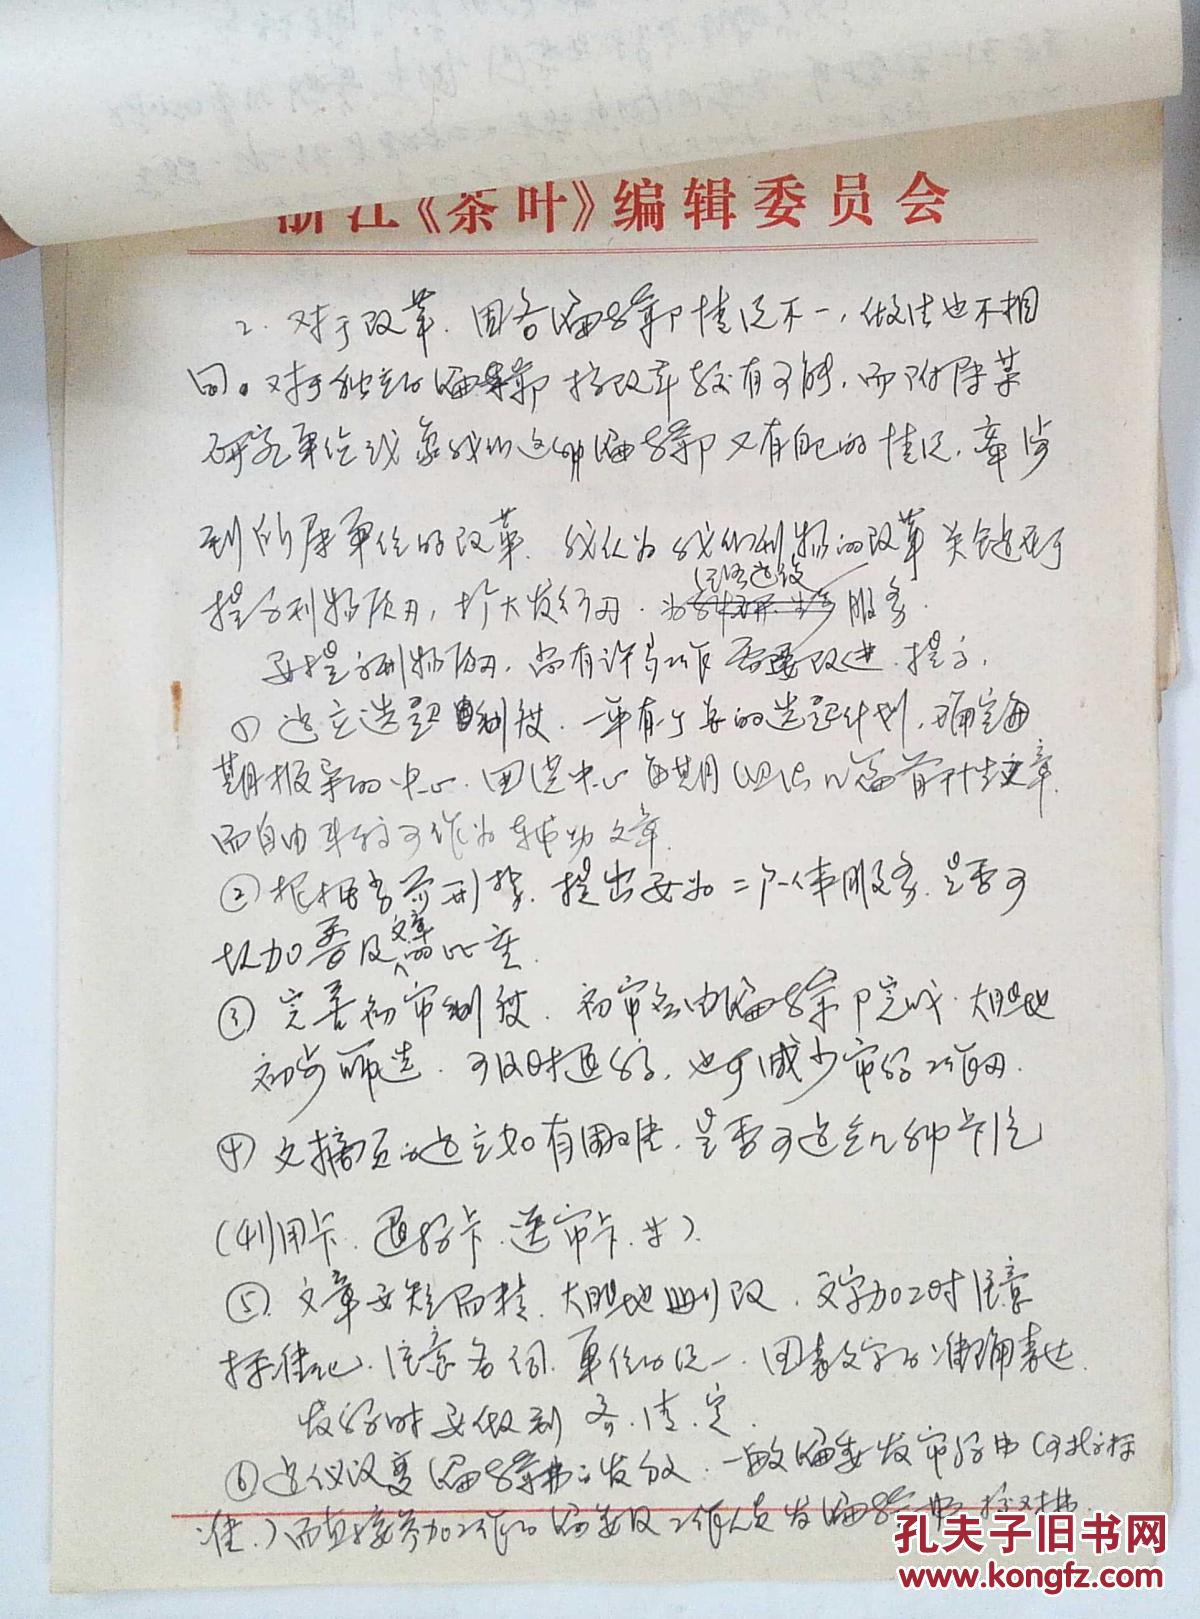 浙江《茶叶》编辑委员会
2. 对于改革．因各编辑部情况不一，做法也不相
同。对于独立的编辑部 搞改革较有可能，而附属某
研究单位或象我们这种编辑部又有自己的情况，牵涉
到所属单位的改革．我认为我们刊物的改革关键在于
提高刊物质量，扩大发行量．为 服务．
要提高刊物质量，尚有许多工作需要改进．提高．
① 建立选题制度．一年有个总的选题计划，确定每
期报导的中心．围绕中心每期组织几篇着重性文章
而自由来稿可作为辅助文章．
② 根据当前形势．提出要为二个一体服务．是否可
增加普及文章的比重．
③ 完善初审制度．初审会由编辑部完成．大胆地
初步筛选．可及时退稿，也可减少审稿工作量．
④ 文摘页的建立如有困难．是否可建立几种卡片
(利用卡．退稿卡．送审卡．等)．
⑤．文章要短而精．大胆地删改．文字加工时注意
标准化．注意名词．单位的统一．图表文字的准确表达．
发稿时要做到 齐．清．定．
⑥ 建议设 编辑 发 ．一般编委发审稿费(可 标
准．)而直接参加工作的编委及工作人员发编辑费 校对费．
孔夫子旧书网
www.kongfz.com